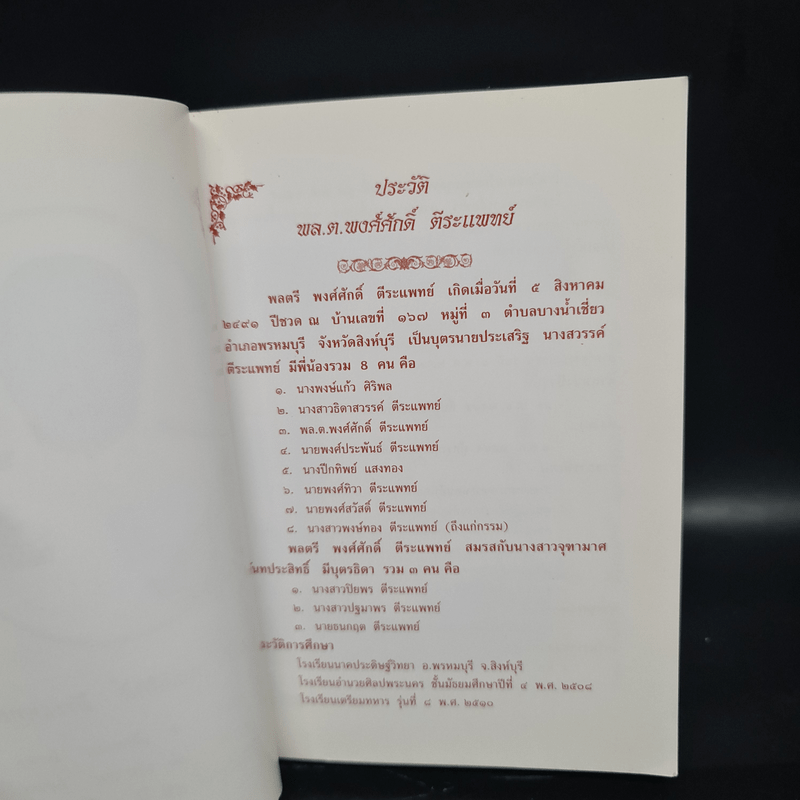 ประวัติ
พล.ต.พงศ์ศักดิ์ ตีระแพทย์
พลตรี พงศ์ศักดิ์ ตีระแพทย์ เกิดเมื่อวันที่ ๕ สิงหาคม
๒๔๙๑ ปีชวด ณ บ้านเลขที่ ๑๖๗ หมู่ที่ ๓ ตำบลบางน้ำเชี่ยว
อำเภอพรหมบุรี จังหวัดสิงห์บุรี เป็นบุตรนายประเสริฐ นางสวรรค์
ตีระแพทย์ มีพี่น้องรวม 8 คน คือ
๑. นางพงษ์แก้ว ศิริพล
๒. นางสาวธิดาสวรรค์ ตีระแพทย์
๓. พล.ต.พงศ์ศักดิ์ ตีระแพทย์
๔. นายพงศ์ประพันธ์ ตีระแพทย์
๕. นางปีกทิพย์ แสงทอง
๖. นายพงศ์ทิวา ตีระแพทย์
๗. นายพงศ์สวัสดิ์ ตีระแพทย์
๘. นางสาวพงษ์ทอง ตีระแพทย์ (ถึงแก่กรรม)
พลตรี พงศ์ศักดิ์ ตีระแพทย์ สมรสกับนางสาวจุฑามาศ
นทประสิทธิ์ มีบุตรธิดา รวม ๓ คน คือ
๑. นางสาวปิยพร ตีระแพทย์
๒. นางสาวปฐมาพร ตีระแพทย์
๓. นายธนกฤต ตีระแพทย์
ะวัติการศึกษา
โรงเรียนนาคประดิษฐ์วิทยา อ.พรหมบุรี จ.สิงห์บุรี
โรงเรียนอำนวยศิลปพระนคร ชั้นมัธยมศึกษาปีที่ ๔ พ.ศ. ๒๕๐๘
โรงเรียนเตรียมทหาร รุ่นที่ ๘ พ.ศ. ๒๕๑๐